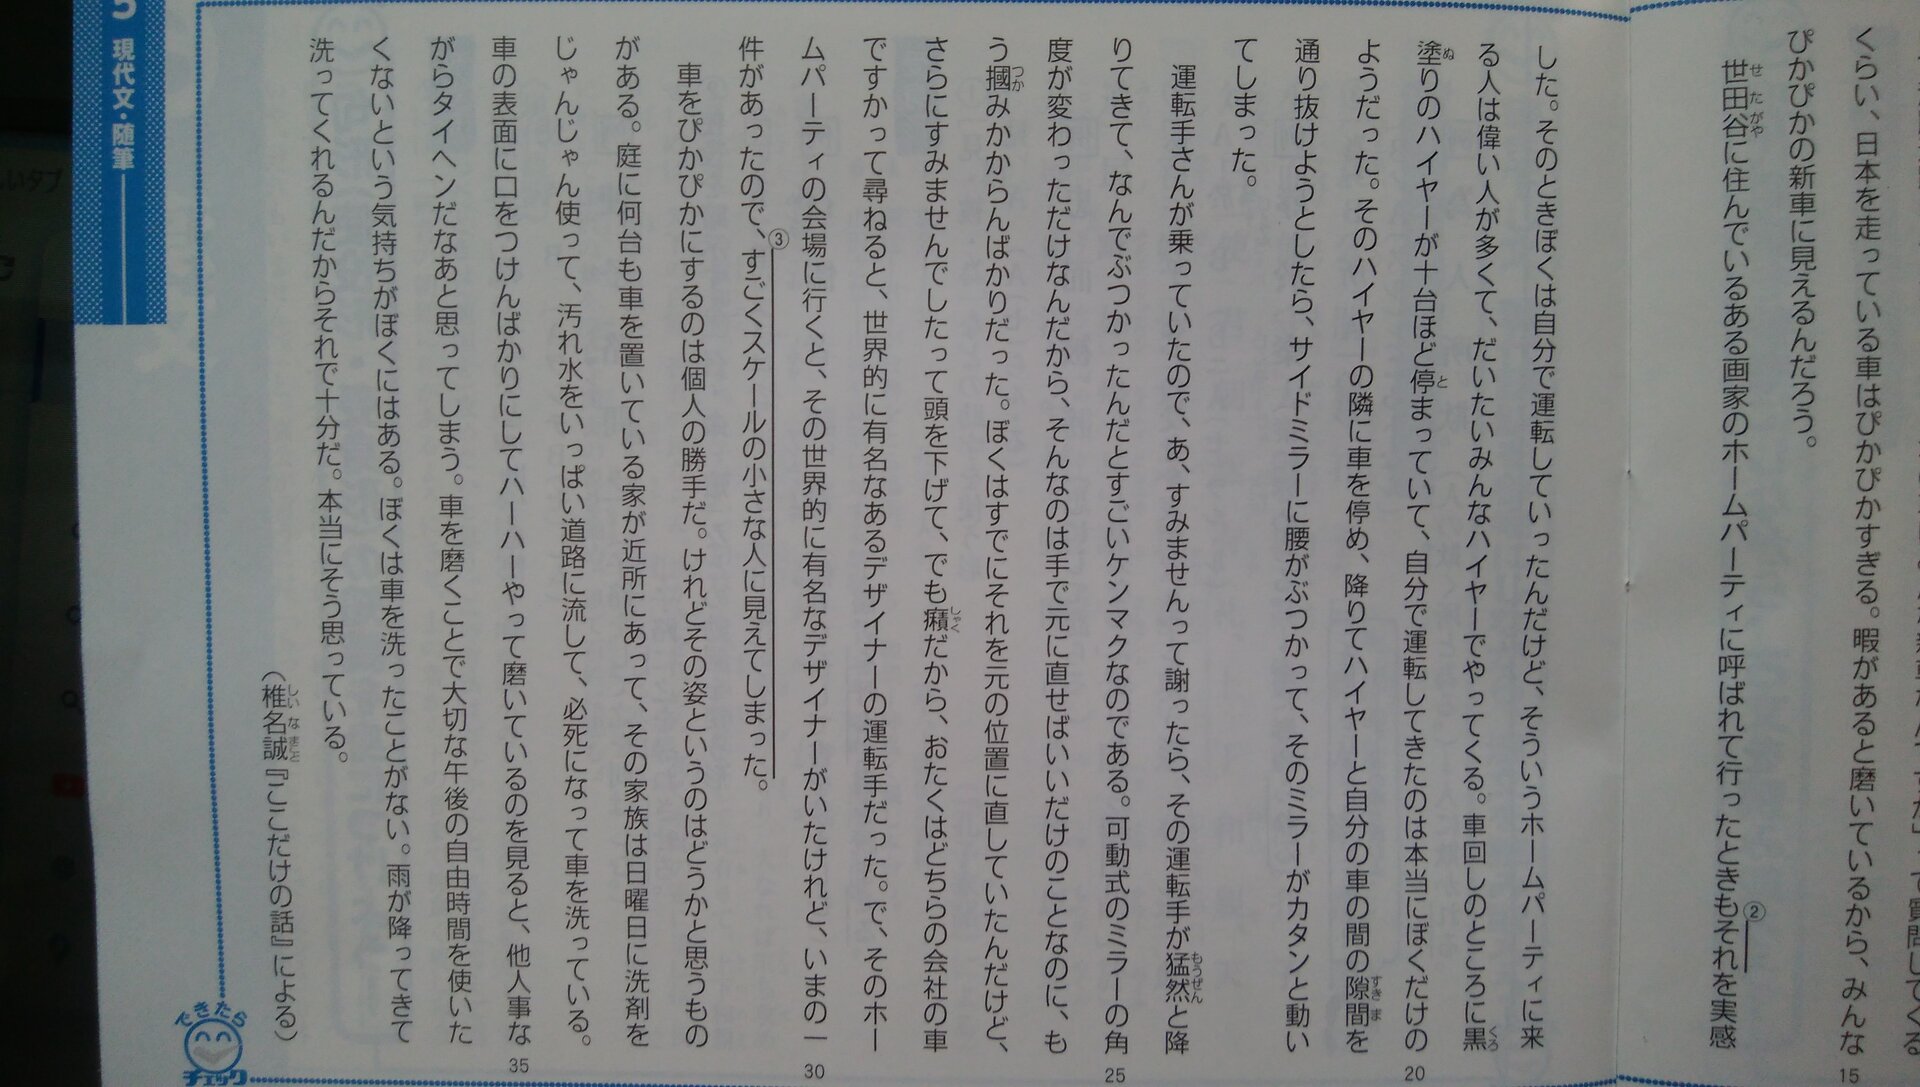 くらい、日本を走っている車はぴかぴかすぎる。暇があると磨いているから、みんな
15
ぴかぴかの新車に見えるんだろう。
世田谷に住んでいるある画家のホームパーティに呼ばれて行ったときもそれを実感
せたがや
②
した。そのときぼくは自分で運転していったんだけど、そういうホームパーティに来
る人は偉い人が多くて、だいたいみんなハイヤーでやってくる。車回しのところに黒
くろ
塗りのハイヤーが十台ほど停まっていて、自分で運転してきたのは本当にぼくだけの
ぬ
と
20
ようだった。そのハイヤーの隣に車を停め、降りてハイヤーと自分の車の間の隙間を
すきま
通り抜けようとしたら、サイドミラーに腰がぶつかって、そのミラーがカタンと動い
てしまった。
運転手さんが乗っていたので、あ、すみませんって謝ったら、その運転手が猛然と降
もうぜん
りてきて、なんでぶつかったんだとすごいケンマクなのである。可動式のミラーの角
25
度が変わっただけなんだから、そんなのは手で元に直せばいいだけのことなのに、も
う摑みかからんばかりだった。ぼくはすでにそれを元の位置に直していたんだけど、
つか
さらにすみませんでしたって頭を下げて、でも癪だから、おたくはどちらの会社の車
しゃく
ですかって尋ねると、世界的に有名なあるデザイナーの運転手だった。で、そのホー
ムパーティの会場に行くと、その世界的に有名なデザイナーがいたけれど、いまの一
30
件があったので、すごくスケールの小さな人に見えてしまった。
③
車をぴかぴかにするのは個人の勝手だ。けれどその姿というのはどうかと思うもの
がある。庭に何台も車を置いている家が近所にあって、その家族は日曜日に洗剤を
じゃんじゃん使って、汚れ水をいっぱい道路に流して、必死になって車を洗っている。
車の表面に口をつけんばかりにしてハーハーやって磨いているのを見ると、他人事な
35
がらタイヘンだなあと思ってしまう。車を磨くことで大切な午後の自由時間を使いた
くないという気持ちがぼくにはある。ぼくは車を洗ったことがない。雨が降ってきて
洗ってくれるんだからそれで十分だ。本当にそう思っている。
（椎名誠『ここだけの話』による）
しいなまこと
5 現代文・随筆
できたら
チェック